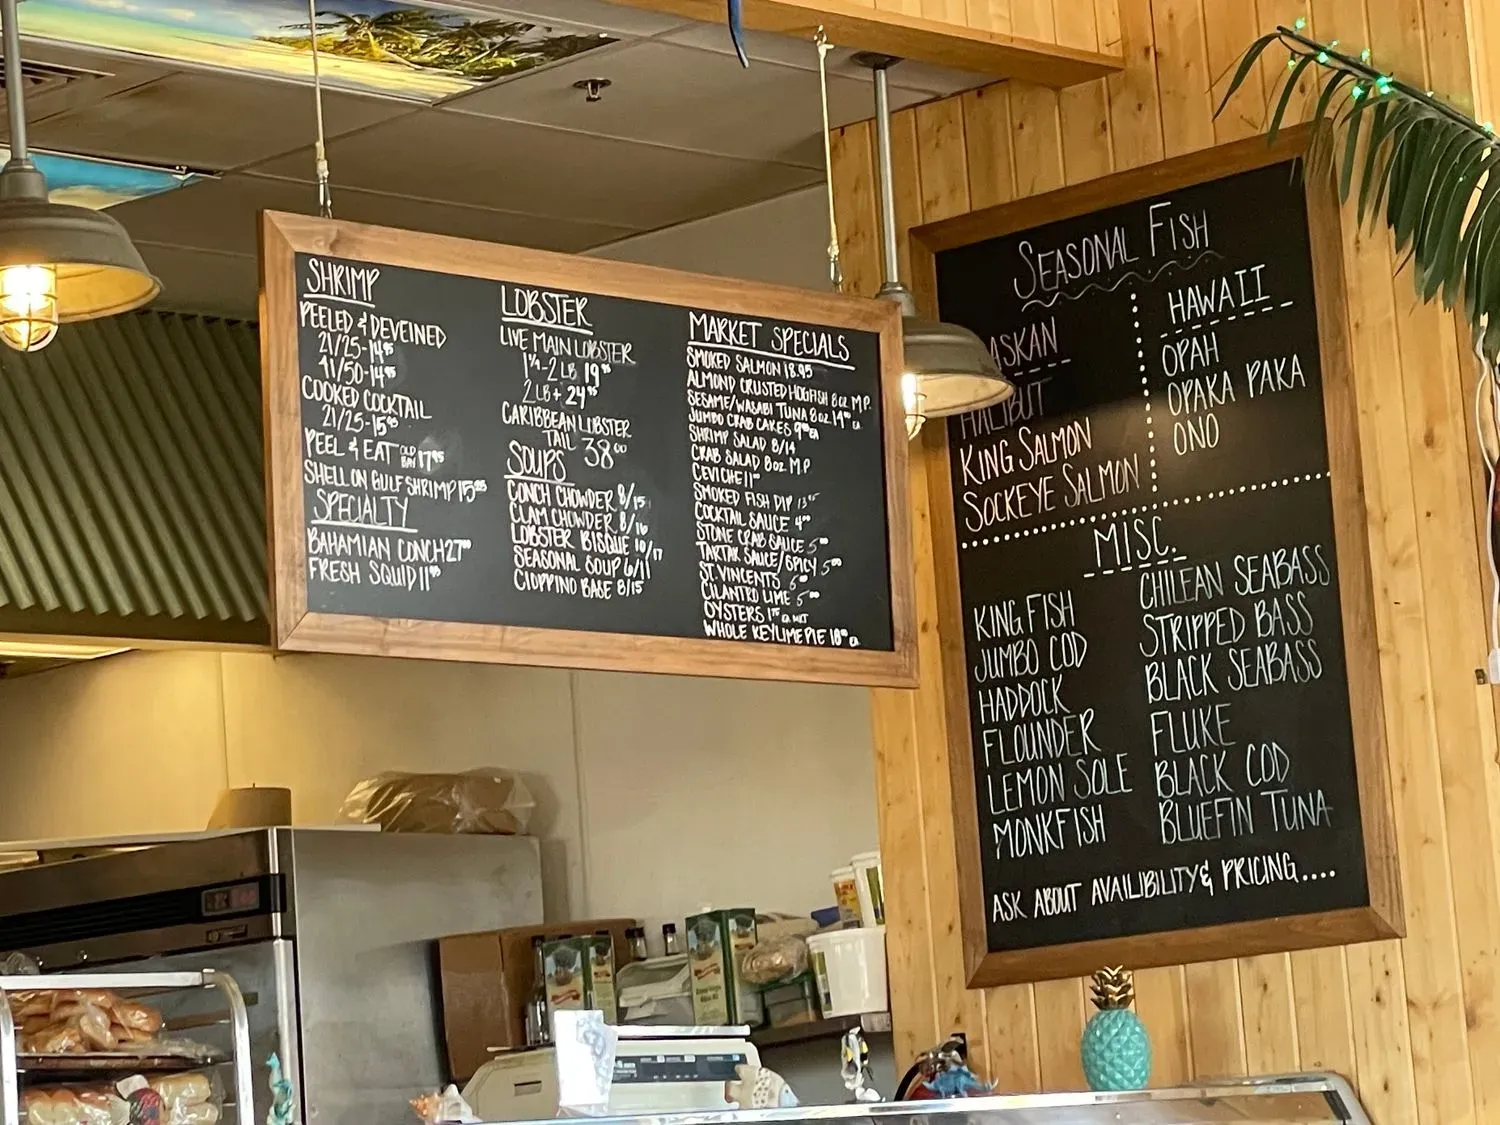 SHRIMP
PEELED & DEVEINED
21/25-14⁹⁵
41/50-14⁹⁵
COOKED COCKTAIL
21/25-15⁹⁵
PEEL & EAT OLD BAY 17⁹⁵
SHELL ON GULF SHRIMP 15⁹⁵
SPECIALTY
BAHAMIAN CONCH 27⁰⁰
FRESH SQUID 11⁹⁵
LOBSTER
LIVE MAIN LOBSTER
1¼-2 LB 19⁹⁵
2 LB + 24⁹⁵
CARIBBEAN LOBSTER
TAIL 38⁰⁰
SOUPS
CONCH CHOWDER 8/15
CLAM CHOWDER 8/16
LOBSTER BISQUE 10/17
SEASONAL SOUP 6/11
CIOPPINO BASE 8/15
MARKET SPECIALS
SMOKED SALMON 18.95
ALMOND CRUSTED HOGFISH 8 OZ M.P.
SESAME/WASABI TUNA 8 OZ 14⁰⁰ EA
JUMBO CRAB CAKES 9⁰⁰ EA
SHRIMP SALAD 8/14
CRAB SALAD 8 OZ M.P
CEVICHE 11⁰⁰
SMOKED FISH DIP 13⁹⁵
COCKTAIL SAUCE 4⁰⁰
STONE CRAB SAUCE 5⁰⁰
TARTAR SAUCE/SPICY 5⁰⁰
ST. VINCENTS 6⁰⁰
CILANTRO LIME 5⁰⁰
OYSTERS 1⁷⁵ EA
WHOLE KEY LIME PIE 18⁰⁰ EA
SEASONAL FISH
ASKAN
HALIBUT
KING SALMON
SOCKEYE SALMON
HAWAII
OPAH
OPAKA PAKA
ONO
MISC.
KING FISH
JUMBO COD
HADDOCK
FLOUNDER
LEMON SOLE
MONKFISH
CHILEAN SEABASS
STRIPPED BASS
BLACK SEABASS
FLUKE
BLACK COD
BLUEFIN TUNA
ASK ABOUT AVAILIBILITY & PRICING....